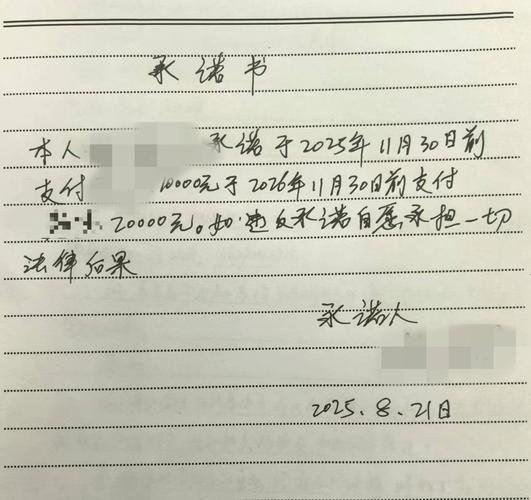 承诺书
本人 承诺于2025年11月30日前
支付 10000元于2026年11月30日前支付
20000元。如违反承诺自愿承担一切
法律后果
承诺人
2025.8.21日